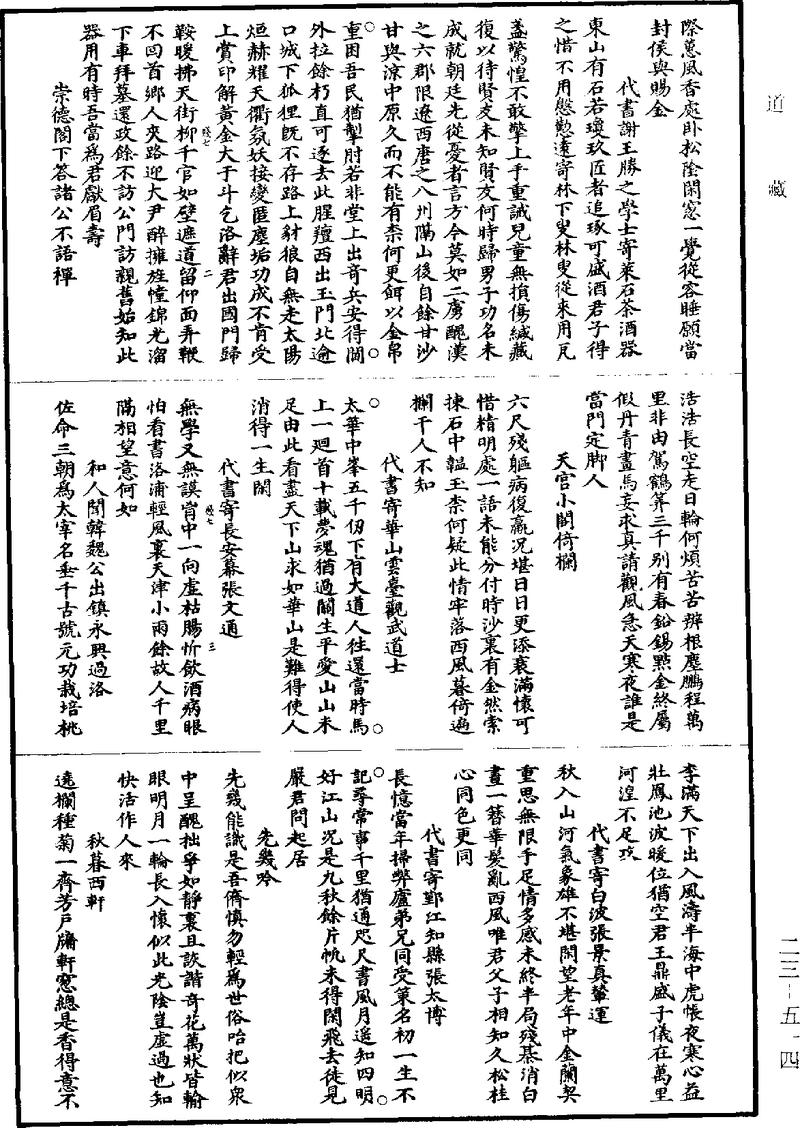 道藏
際蕙風香處臥松陰閑窻一覺從容睡願當
封侯與賜金
代書謝王勝之學士寄萊石茶酒器
東山有石若瓊玖匠者追琢可盛酒君子得
之惜不用慇懃遠寄林下叟林叟從來用瓦
盞驚惶不敢擎上手重誡兒童無損傷緘藏
復以待賢友未知賢友何時歸男子功名未
成就朝廷先從憂者言方今莫如二虜醜漢
之六郡限遼西唐之八州隔山後自餘甘沙
甘與涼中原久而不能有柰何更餌以金帛
重困吾民猶掣肘若非堂上出奇兵安得閫
外拉餘朽直可逐去此腥羶西出玉門北逾
口城下狐狸旣不存路上豺狼自無走太陽
烜赫耀天衢氛妖接變匿塵垢功成不肯受
上賞印解黃金大于斗乞洛辭君出國門歸
鞍暖拂天街柳千官如壁遮道留仰面弄鞭
不回首鄉人夾路迎大尹醉擁旌幢錦光溜
下車拜墓還政餘不訪公門訪親舊始知此
器用有時吾當爲君獻眉壽
崇德閣下答諸公不語禪
浩浩長空走日輪何煩苦苦辨根塵鵬程萬
里非由駕鶴筭三千別有春鉛錫點金終屬
假丹青畫馬妄求真請觀風急天寒夜誰是
當門定脚人
天宮小閣倚欄
六尺殘軀病復羸況堪日日更添衰滿懷可
惜精明處一語未能分付時沙裏有金然索
揀石中韞玉柰何疑此情牢落西風暮倚遍
欄干人不知
代書寄華山雲臺觀武道士
太華中峯五千仞下有大道人往還當時馬
上一迴首十載夢魂猶過關生平愛山山未
足由此看盡天下山求如華山是難得使人
消得一生閑
代書寄長安幕張文通
無學又無謨胷中一向虛枯腸忻飲酒病眼
怕看書洛浦輕風裏天津小雨餘故人千里
隔相望意何如
和人聞韓魏公出鎮永興過洛
佐命三朝爲太宰名垂千古號元功栽培桃
李滿天下出入風濤半海中虎帳夜寒心益
壯鳳池波暖位猶空君王鼎盛子儀在萬里
河湟不足攻
代書寄白波張景真輦運
秋入山河氣象雄不堪閑望老年中金蘭契
重思無限手足情多感未終半局殘棊消白
晝一簪華髮亂西風唯君父子相知久松桂
心同色更同
代書寄鄞江知縣張太博
長憶當年掃弊廬弟兄同受策名初一生不
記尋常事千里猶通咫尺書風月遥知四明
好江山況是九秋餘片帆未得閑飛去徒見
嚴君問起居
先幾吟
先幾能識是吾儕慎勿輕爲世俗咍把似衆
中呈醜拙寧如靜裏且詼諧奇花萬狀皆輸
眼明月一輪長入懷似此光陰豈虛過也知
快活作人來
秋暮西軒
遶欄種菊一齊芳戶牖軒窻總是香得意不
二三-五一四